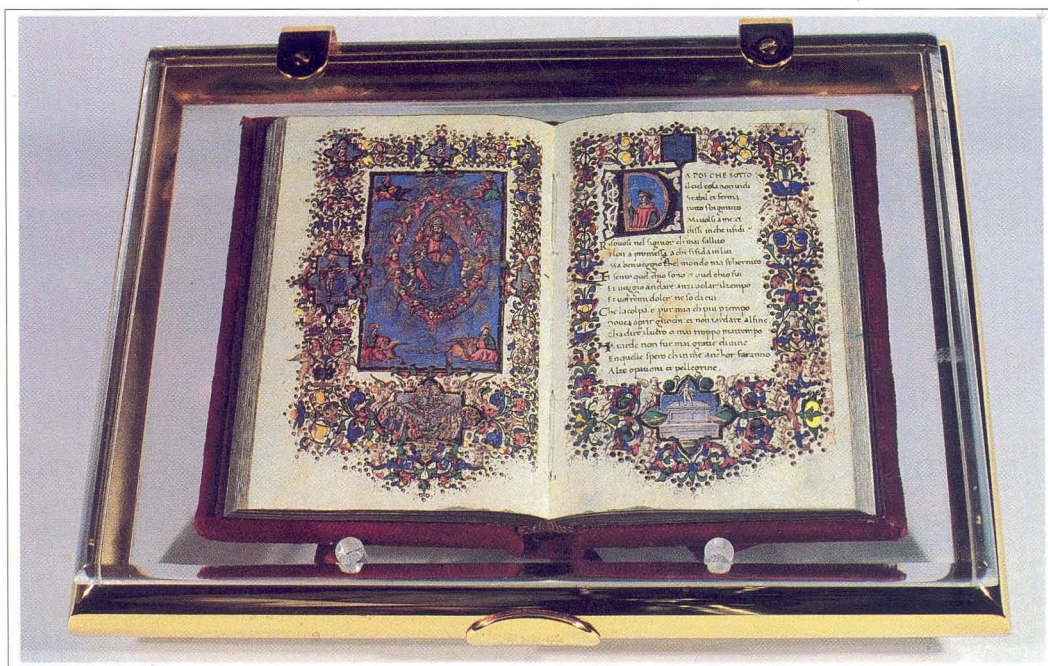 DA POI CHE SOTTO
il ciel cosa non vidi
Stabil et ferma
tutto sbigottito
Mi volsi a me et
dissi in che ti fidi
Rispuosi nel signor ch mai fallito
Non a promessa a chi si fida in lui
Ma ben veggio chel mondo ma schernito
Et sento quel chio sono et quel chio fui
Et veggio andare anzi volar il tempo
Et vorremi doler ne so di cui
Che la colpa e pur mia ch piu p tempo
et non tardare al fine
cha dire il vero o mai troppo mattempo
Ma tarde non fur mai gratie divine
En quelle spero ch in me anchor faranno
Alte operationi et pellegrine.